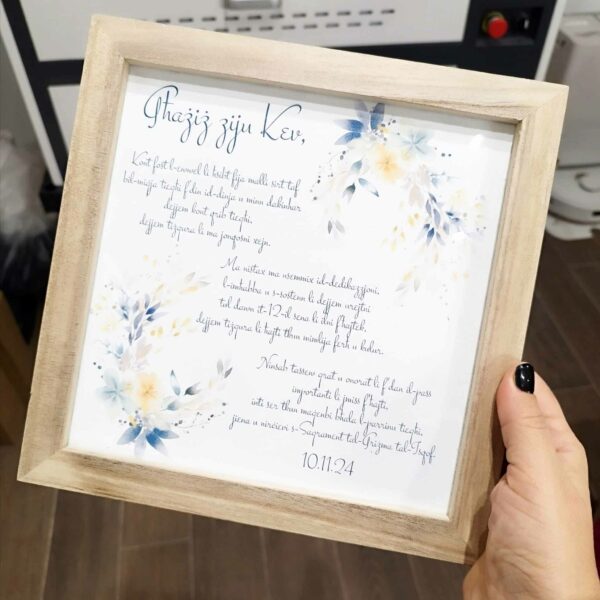 Għażiż ziju Kev,
Kont fost l-ewwel li kidit fija malli sirt taf
bil-miġja tiegħi f'din id-dinja u minn dakinhar
dejjem kont qrib tiegħi,
dejjem tiżgura li ma jonqosni xejn.
Ma nistax ma nsemmix id-dedikazzjoni,
l-imħabba u s-sostenn li dejjem urejtni
tul dawn it-12-il sena li ilni f'ħajtek,
dejjem tiżgura li ħajti tkun mimlija ferħ u kulur.
Ninsab tassew grat u onorat li f'dan il-pass
importanti li jmiss f'ħajti,
inti ser tkun magenbi bħala l-parrinu tiegħi,
jiena u nirċievi s-Sagrament tal-Griżma tal-Isqof.
10.11.24